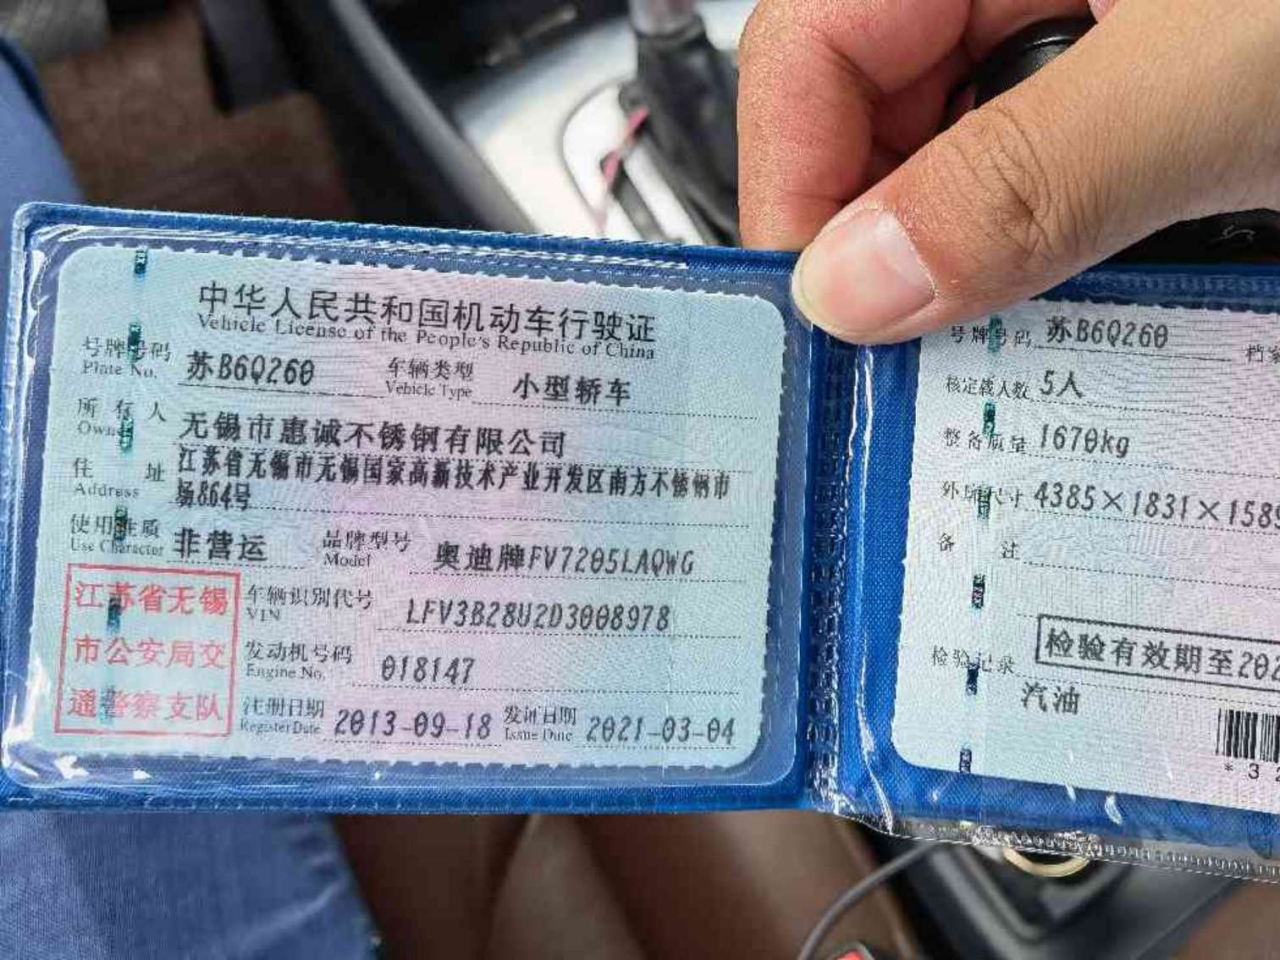 中华人民共和国机动车行驶证
Vehicle License of the People's Republic of China
号牌号码 苏B6Q260 车辆类型 小型轿车
Plate No. Vehicle Type
所有人 无锡市惠诚不锈钢有限公司
Owner
住址 江苏省无锡市无锡国家高新技术产业开发区南方不锈钢市
Address 场864号
使用性质 非营运 品牌型号 奥迪牌FV7205LAQWG
Use Character Model
江苏省无锡
市公安局交
通警察支队
车辆识别代号 LFV3B28U2D3008978
VIN
发动机号码 018147
Engine No.
注册日期 2013-09-18 发证日期 2021-03-04
Register Date Issue Date
号牌号码 苏B6Q260 档
核定载人数 5人
整备质量 1670kg
外廓尺寸 4385×1831×158
备注
检验记录 检验有效期至202
汽油
*32